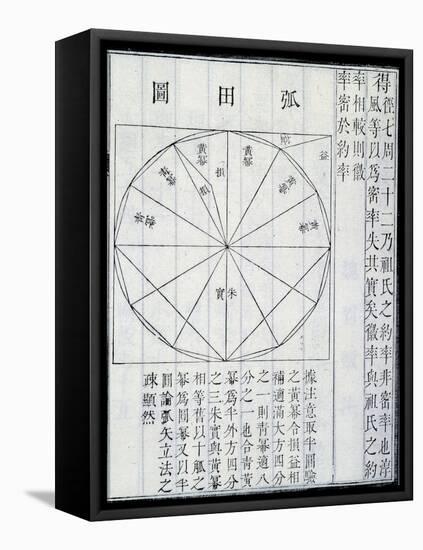 得徑七周二十二乃祖氏之約率非密率也淳
風等以爲密率失其實矣徽率與祖氏之約
率相較則徽
率密於約率
弧田圖
益
黃冪
損
黃冪
黃冪
朱實
據注意取半圓驗
之黃冪令損益相
補適滿大方四分
之一則青冪適八
分之一也合青黃
冪爲半外方四分
之三朱實與黃冪
相等舊以十觚之
冪爲圓冪又以半
圓論弧矢立法之
疎顯然